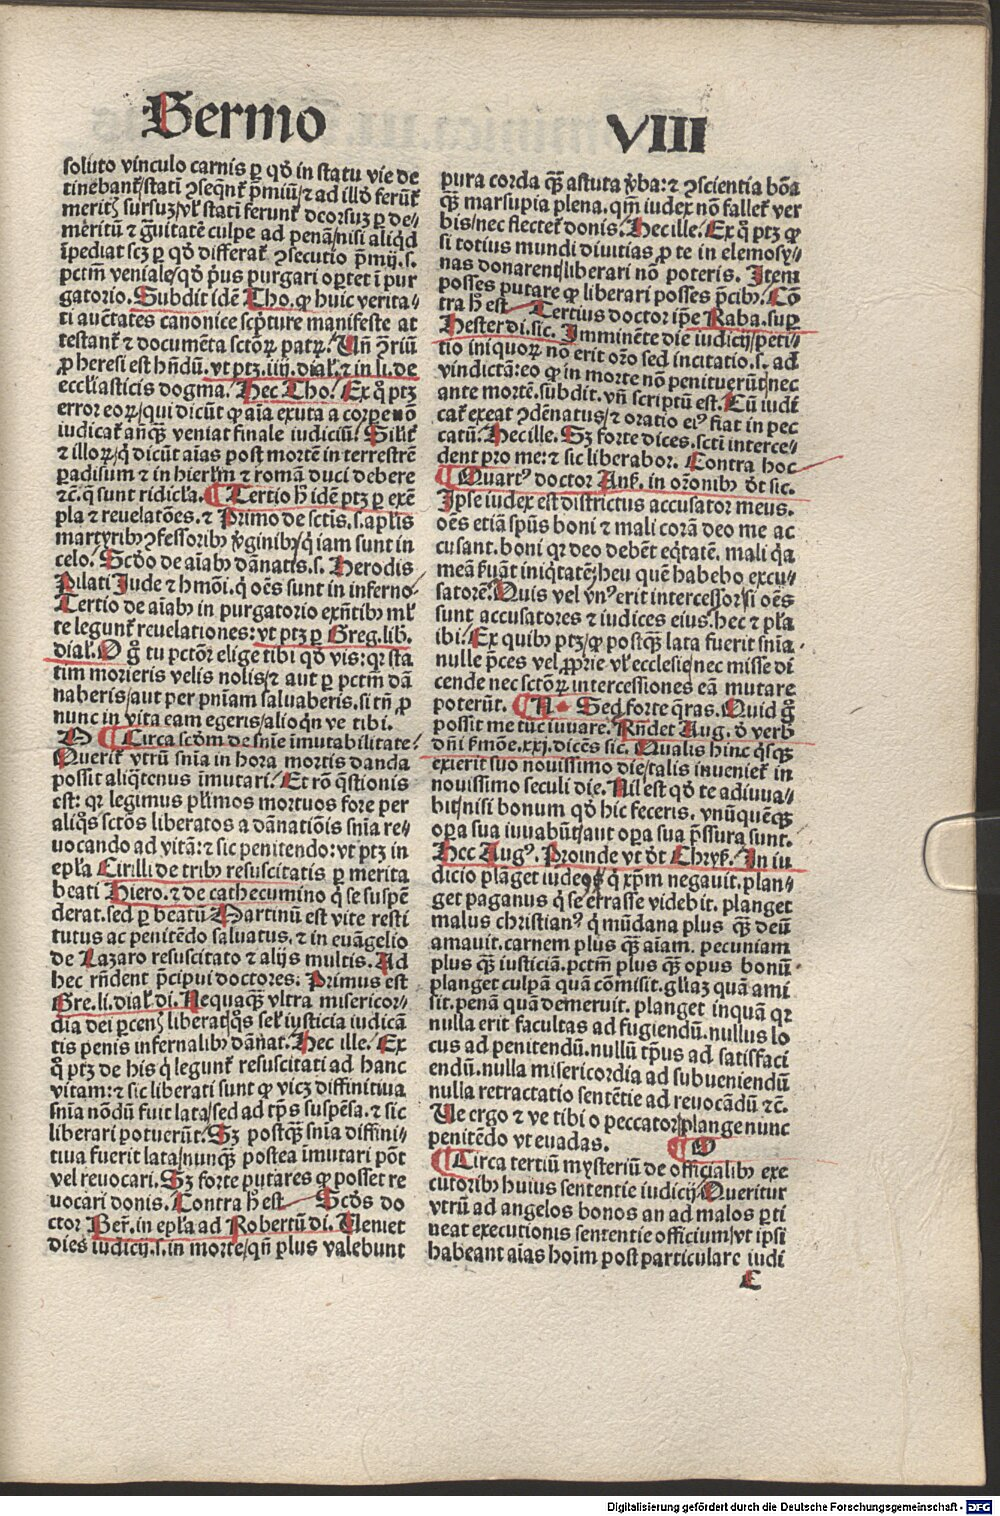 Sermo VIII
soluto vinculo carnis ꝑ qd̛ in statu vie de
tinebant᷑/stati ↄseqnt᷑ p̄miū/⁊ ad illd̛ ferūt᷑
meritꝫ sursuꝫ/vl᷑ stati ferunt᷑ deorsuꝫ ꝑ de⸗
meritū ⁊ g̃uitatē culpe ad penā/nisi aliqd
īpediat scꝫ ꝑ qd̛ differat᷑ ↄsecutio p̄mij.s.
pctm̄ veniale/qd̛ pus purgari oꝑtet ī pur
gatorio. Subdit idē Tho. ꝙ huic verita⸗
ti auc̄tates canonice scp̄ture manifeste at
testant᷑ ⁊ documēta sctōꝝ patꝝ. Un̄ ↄ̄riū
ꝓ heresi est hn̄dū. vt ptꝫ.iiij. dial᷑. ⁊ in li. de
eccl̄iasticis dogma. Hec Tho. Ex q̊ ptꝫ
error eoꝝ/qui dicūt ꝙ aīa exuta a corpe nō
iudicat᷑ anq̄ꝫ veniat finale iudiciū. Silit᷑
⁊ illoꝝ/q̇ dicūt aīas post mortē in terrestrē
ꝑadisum ⁊ in hierl̄m ⁊ romā duci debere
⁊c̄. q̄ sunt ridicl̄a. ¶ Tertio h̄ idē ptꝫ ꝑ exē
pla ⁊ reuelatōes. ⁊ Primo de sctīs.s. apl̄is
martyribꝰ ↄfessoribꝫ v̄ginibꝫ/q̇ iam sunt in
celo. Scd̛o de aīabꝫ dānatis.s. Herodis
Pilati Jude ⁊ hmōi. q̇ oēs sunt in inferno⸗
Tertio de aīabꝫ in purgatorio exn̄tibꝫ ml᷑
te legunt᷑ reuelationes: vt ptꝫ ꝑ Greg. lib.
dial᷑. O g̊ tu pctōr elige tibi qd̛ vis: qr sta
tim morieris velis nolis/⁊ aut ꝑ pctm̄ dā
naberis/aut per pniam saluaberis. si tn̄ ꝓ
nunc in vita eam egeris/alioqn ve tibi.
O ¶ Circa scd̛m de snīe īmutabilitate⸗
Querit᷑ vtrū snīa in hora mortis danda
possit aliqtenus īmutari. Et rō q̄stionis
est: qr legimus pl̄imos mortuos fore per
aliq̊s sctōs liberatos a dānatiōis snīa re⸗
uocando ad vitā: ⁊ sic penitendo: vt ptꝫ in
epl̄a Cirilli de tribꝰ resuscitatis ꝑ merita
beati Hiero. ⁊ de cathecumino q̇ se suspē
derat. sed ꝑ beatū Martinū est vite resti
tutus ac penitēdo saluatus. ⁊ in euāgelio
de Lazaro resuscitato ⁊ alijs multis. Ad
hec rn̄dent p̄cipui doctores: Primus est
Gre. li. dial᷑. di. Neq̄aq̄ꝫ vltra misericor⸗
dia dei ꝑcenꝫ liberat/q̊s sel᷑ iusticia iudicā
tis penis infernalibꝫ dānat. Hec ille. Ex
q̊ ptꝫ de his q̇ legunt᷑ resuscitati ad hanc
vitam: ⁊ sic liberati sunt ꝙ vicꝫ diffinitiua
snīa nōdū fuit lata/sed ad tp̄s suspēsa. ⁊ sic
liberari potuerūt. Sꝫ postq̄ꝫ snīa diffini⸗
tiua fuerit lata/nunq̄ꝫ postea īmutari pōt
vel reuocari. Sꝫ forte putares ꝙ posset re
uocari donis. Contra h̄ est Scd̛s do
ctor Ber̄. in epl̄a ad Robertū di. Ueniet
dies iudicij.s. in morte/qn̄ plus valebunt
pura corda q̄ꝫ astuta v̄ba: ⁊ ↄscientia bōa
q̄ꝫ marsupia plena. qm̄ iudex nō fallet᷑ ver
bis/nec flectet᷑ donis. Hec ille. Ex q̊ ptꝫ ꝙ
si totius mundi diuitias ꝓ te in elemosy⸗
nas donarent/liberari nō poteris. Item
posses putare ꝙ liberari posses p̄cibꝫ. Cō
tra h̄ est Tertius doctor ip̄e Raba. sup̄
Hester di. sic. Imminēte die iudicij/peti⸗
tio iniquoꝝ nō erit orō sed incitatio.s. ad
vindictā: eo ꝙ in morte nō penituerūt/nec
ante mortē. subdit. vn̄ scriptū est. Cū iudi
cat᷑ exeat ↄdēnatus/⁊ oratio eiꝰ fiat in pec
catū. Hec ille. Sꝫ forte dices. sctī interce⸗
dent pro me: ⁊ sic liberabor. Contra hoc
¶ Quartꝰ doctor Ans̄. in orōnibꝫ d̄t sic.
Ipse iudex est districtus accusator meus.
oēs etiā spūs boni ⁊ mali corā deo me ac
cusant. boni qr deo debēt eq̇tatē. mali q̇a
meā s̄uāt iniq̇tatē; heu quē habebo excu⸗
satorē. Quis vel vn̄ꝰ erit intercessor/si oēs
sunt accusatores ⁊ iudices eius. hec ⁊ pl̄a
ibi. Ex quibꝫ ptꝫ/ꝙ postq̄ꝫ lata fuerit snīa⸗
nulle p̄ces vel ꝓprie vl᷑ ecclesie/nec misse di
cende nec sctōꝝ intercessiones eā mutare
poterūt. ¶ N Sed forte q̄ras. Quid g̊
possit me tūc iuuare. Rn̄det Aug. d̄ verb
dn̄i s̄mōe.xxj. dicēs sic. Qualis hinc q̇sq̄ꝫ
exierit suo nouissimo die/talis inueniet᷑ in
nouissimo seculi die. Nil est qd̛ te adiuua⸗
bit/nisi bonum qd̛ hic feceris. vnūquēq̄ꝫ
oꝑa sua iuuabūt/aut oꝑa sua p̄ssura sunt.
Hec Augꝰ. Proinde vt d̄t Chrys̄. In iu
dicio plāget iudeꝰ q̇ xp̄m negauit. plan⸗
get paganus q̇ se errasse videbit. planget
malus christianꝰ q̇ mūdana plus q̄ꝫ deū
amauit. carnem plus q̄ꝫ aīam. pecuniam
plus q̄ꝫ iusticiā. pctm̄ plus q̄ꝫ opus bonū.
planget culpā quā cōmisit. gl̄iaꝫ quā ami
sit. penā quā demeruit. planget inquā qr
nulla erit facultas ad fugiendū. nullus lo
cus ad penitendū. nullū tp̄us ad satisfaci
endū. nulla misericordia ad subueniendū
nulla retractatio sentētie ad reuocādū ⁊c̄.
Ue ergo ⁊ ve tibi o peccator/plange nunc
penitēdo vt euadas. ¶ O
¶ Circa tertiū mysteriū de officialibꝫ exe
cutoribꝫ huius sententie iudicij/Queritur
vtrū ad angelos bonos an ad malos ꝑti
neat executionis sententie officium/vt ipsi
habeant aīas hoīm post particulare iudi
C
Digitalisierung gefördert durch die Deutsche Forschungsgemeinschaft - DFG